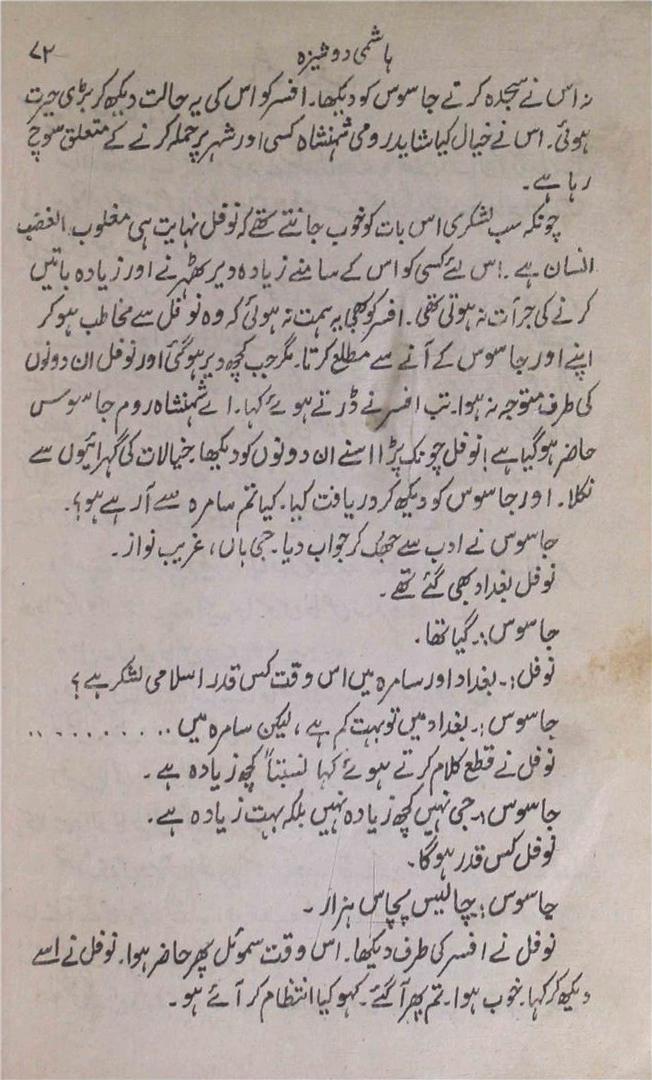 ہاشمی دوشیزہ ۷۲
نہ اس نے سجدہ کرتے جاسوس کو دیکھا۔ افسر کو اس کی یہ حالت دیکھ کر بڑی حیرت
ہوئی۔ اس نے خیال کیا شاید رومی شہنشاہ کسی اور شہر پر حملہ کرنے کے متعلق سوچ
رہا ہے۔
چونکہ سب لشکری اس بات کو خوب جانتے تھے کہ نوفل نہایت ہی مغلوب الغضب
انسان ہے۔ اس لئے کسی کو اس کے سامنے زیادہ دیر ٹھہرنے اور زیادہ باتیں
کرنے کی جرأت نہ ہوتی تھی۔ افسر کو بھی یہ ہمت نہ ہوئی کہ وہ نوفل سے مخاطب ہو کر
اپنے اور جاسوس کے آنے سے مطلع کرتا۔ مگر جب کچھ دیر ہو گئی اور نوفل ان دونوں
کی طرف متوجہ نہ ہوا۔ تب افسر نے ڈرتے ہوئے کہا۔ اے شہنشاہ روم جاسوس
حاضر ہو گیا ہے! نوفل چونک پڑا اسنے ان دونوں کو دیکھا۔ خیالات کی گہرائیوں سے
نکلا۔ اور جاسوس کو دیکھ کر دریافت کیا۔ کیا تم سامرہ سے آ رہے ہو؟۔
جاسوس نے ادب سے جھک کر جواب دیا۔ جی ہاں، غریب نواز۔
نوفل بغداد بھی گئے تھے۔
جاسوس:۔ گیا تھا۔
نوفل:۔ بغداد اور سامرہ میں اس وقت کس قدر اسلامی لشکر ہے؟
جاسوس:۔ بغداد میں تو بہت کم ہے، لیکن سامرہ میں ..........
نوفل نے قطع کلام کرتے ہوئے کہا نسبتاً کچھ زیادہ ہے۔
جاسوس:۔ جی نہیں کچھ زیادہ نہیں بلکہ بہت زیادہ ہے۔
نوفل کس قدر ہو گا۔
جاسوس:۔ چالیس پچاس ہزار۔
نوفل نے افسر کی طرف دیکھا۔ اس وقت سموئل پھر حاضر ہوا۔ نوفل نے اسے
دیکھ کر کہا۔ خوب ہوا۔ تم پھر آ گئے۔ کہو کیا انتظام کر آئے ہو۔